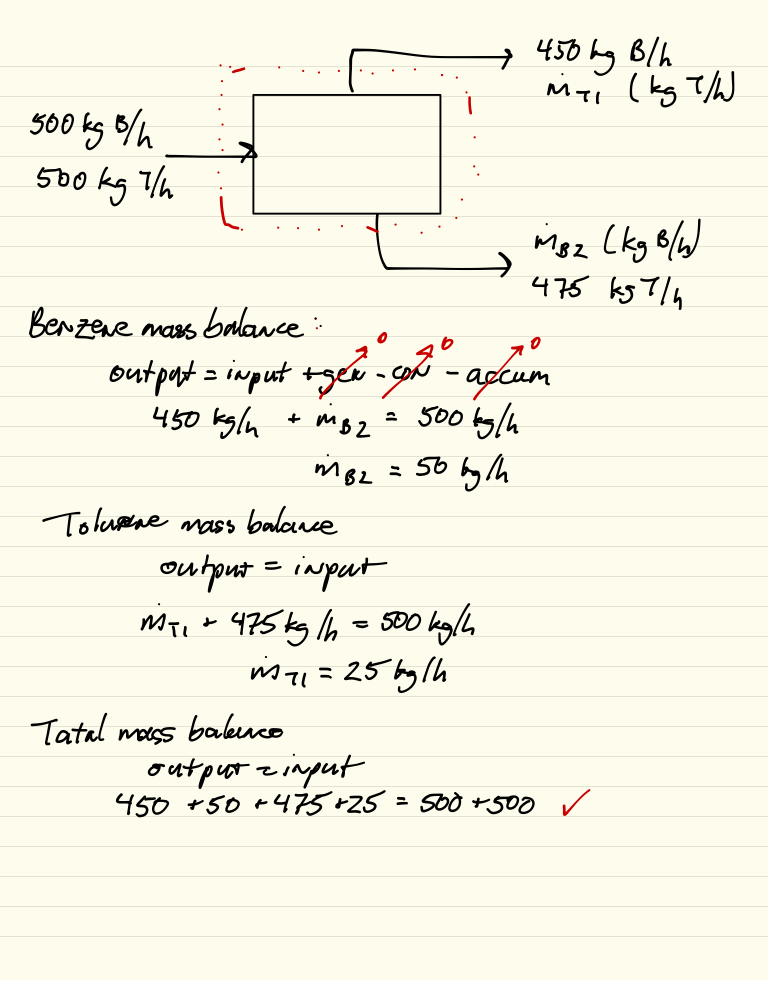 450 kg B/h
ṁ_T1 (kg T/h)
500 kg B/h
500 kg T/h
ṁ_B2 (kg B/h)
475 kg T/h
Benzene mass balance :
output = input + gen - con - accum
0 0 0
450 kg/h + ṁ_B2 = 500 kg/h
ṁ_B2 = 50 kg/h
Toluene mass balance
output = input
ṁ_T1 + 475 kg/h = 500 kg/h
ṁ_T1 = 25 kg/h
Total mass balance
output = input
450 + 50 + 475 + 25 = 500 + 500 ✓